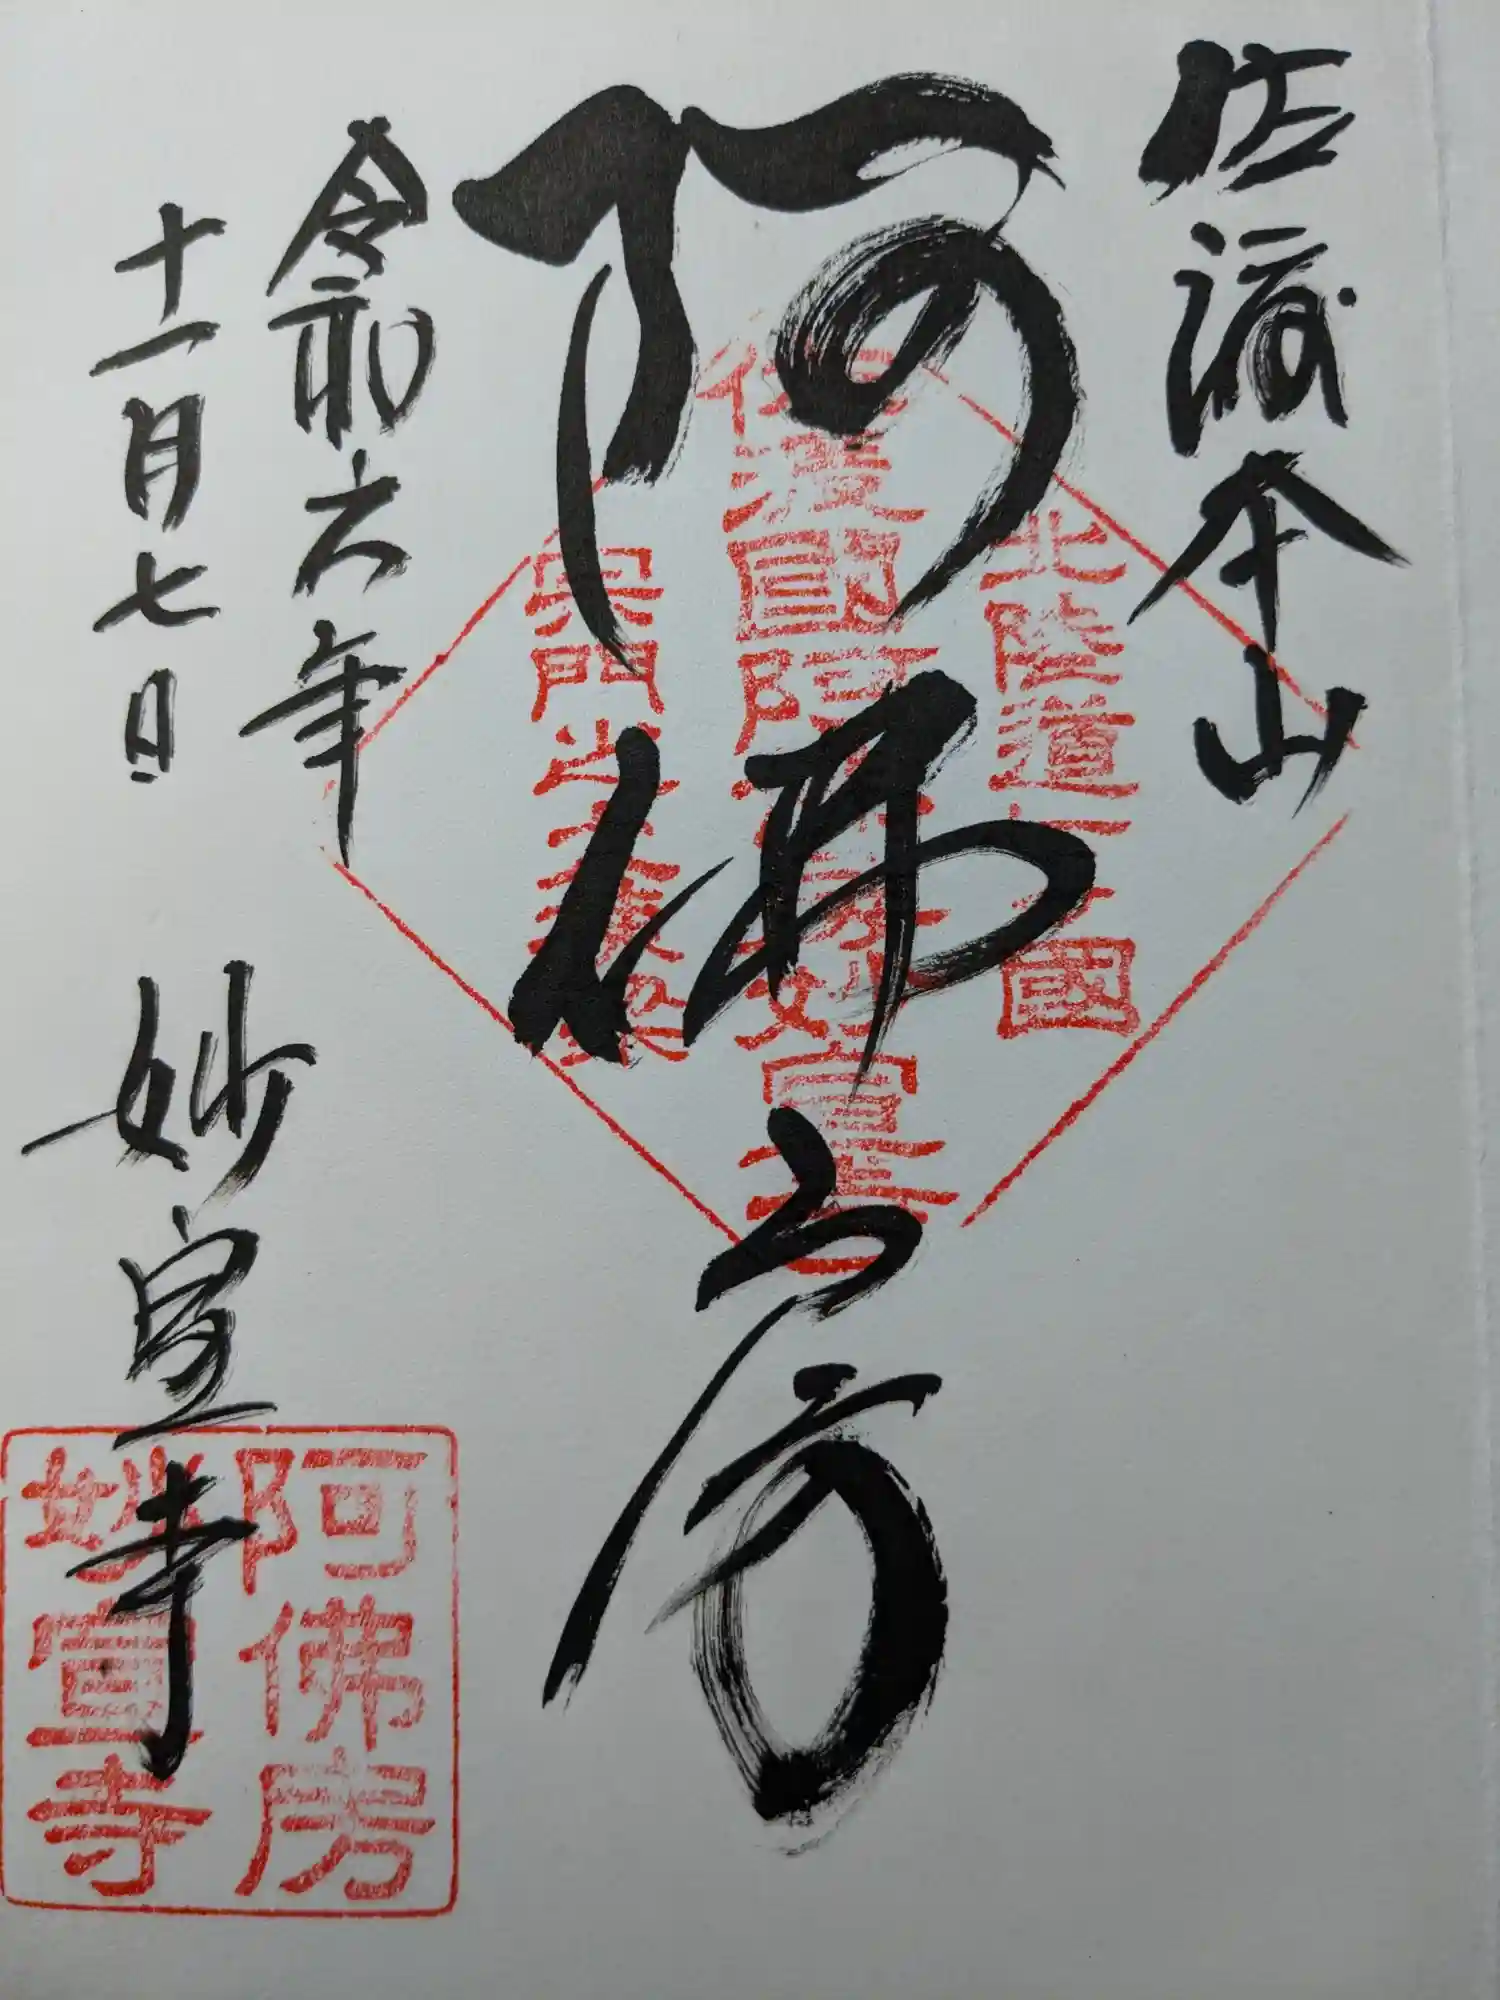 佐渡本山
阿佛房
令和六年
十一月七日
妙宣寺
北陸道七ケ國
佐渡國阿佛房妙宣寺
阿佛房
妙宣寺